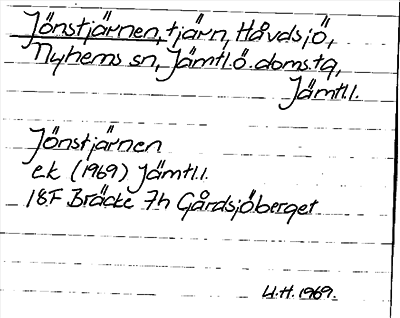 Jönstjärnen, tjärn, Håvdsjö,
Nyhems sn, Jämtl.ö.doms.tg,
Jämtl.l.
Jönstjärnen
ek (1969) Jämtl.l.
18F Bräcke 7h Gårdsjöberget
U.H. 1969.